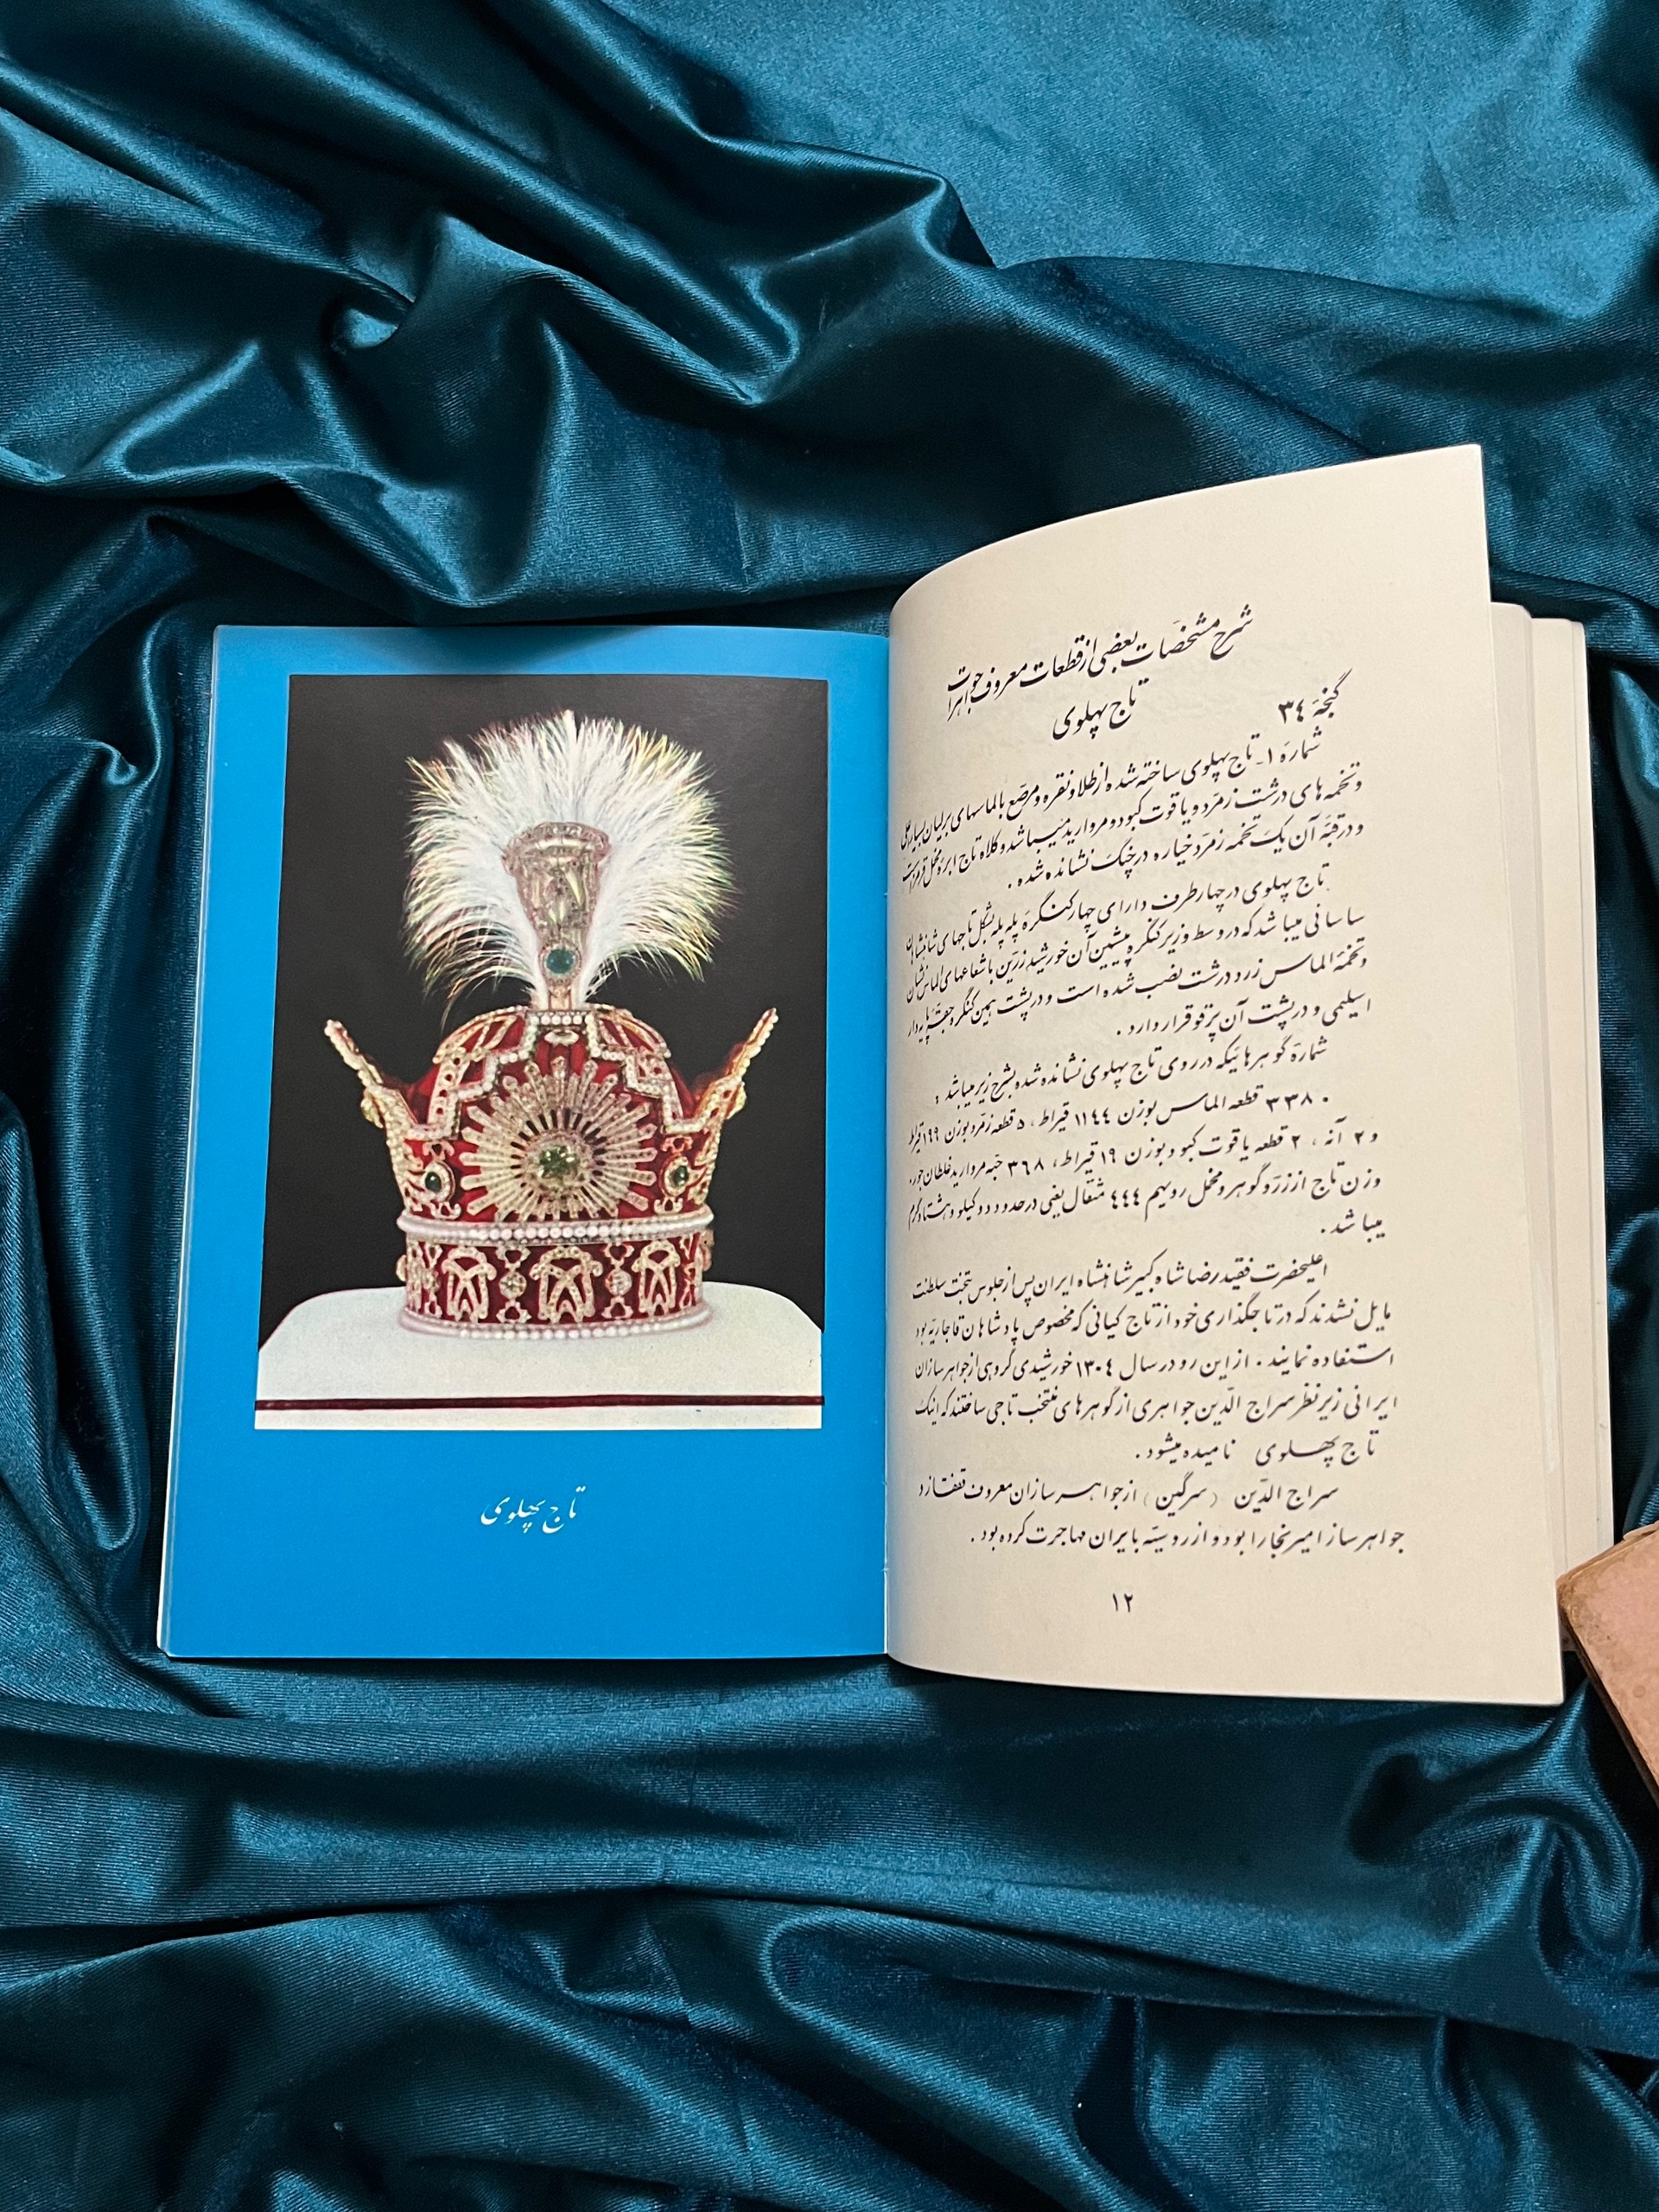 شرح مشخصات بعضی از قطعات معروف جواهرات
گنجهٔ ٣٤ تاج پهلوی
شمارهٔ ١- تاج پهلوی ساخته شده از طلا و نقره و مرصع بالماسهای برلیان بسیار عالی
و تخمه های درشت زمرّد و یاقوت کبود و مروارید میباشد و کلاه تاج ابره مخمل قرمز است
و در قبهٔ آن یک تخمه زمرّد خیاره در چنگ نشانده شده .
تاج پهلوی در چهار طرف دارای چهار کنگرهٔ پله پله بشکل تاجهای شاهنشاهان
ساسانی میباشد که در وسط و زیر کنگره پیشین آن خورشید زرّین با شعاعهای الماس نشان
و تخمهٔ الماس زرد درشت نصب شده است و در پشت همین کنگره جقهٔ پایه دار
اسلیمی و در پشت آن پرّ قو قرار دارد .
شمارهٔ گوهرهائیکه در روی تاج پهلوی نشانده شده بشرح زیر میباشد :
٣٣٨٠ قطعه الماس بوزن ١١٤٤ قیراط ، ٥ قطعه زمرّد بوزن ١٩٩ قیراط
و ٢ آنه ، ٢ قطعه یاقوت کبود بوزن ١٩ قیراط ، ٣٦٨ حبه مروارید غلطان جور .
وزن تاج از زر و گوهر و مخمل رویهم ٤٤٤ مثقال یعنی در حدود دو کیلو و هشتاد گرم
میباشد .
اعلیحضرت فقید رضا شاه کبیر شاهنشاه ایران پس از جلوس بتخت سلطنت
مایل نشدند که در تاجگذاری خود از تاج کیانی که مخصوص پادشاهان قاجاریه بود
استفاده نمایند . از این رو در سال ١٣٠٤ خورشیدی گروهی از جواهرسازان
ایرانی زیر نظر سراج الدّین جواهری از گوهرهای منتخب تاجی ساختند که اینک
تاج پهلوی نامیده میشود .
سراج الدّین (سرگین) از جواهرسازان معروف قفقاز و
جواهرساز امیر بخارا بود و از روسیّه بایران مهاجرت کرده بود .
١٢
تاج پهلوی